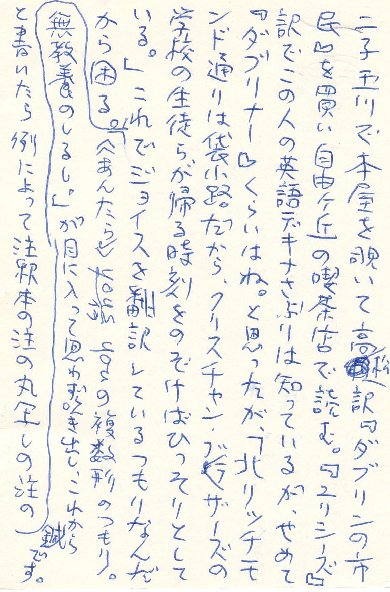 二子玉川で本屋を覗いて高松訳『ダブリンの市
民』を買い自由ケ丘の喫茶店で読む。『ユリシーズ』
訳でこの人の英語デキナさぶりは知っているが、せめて
『ダブリナー』くらいはね。と思ったが、「北リッチモ
ンド通りは袋小路だから、クリスチャン・ブラザーズの
学校の生徒らが帰る時刻をのぞけばひっそりとして
いる。」これでジョイスを翻訳しているつもりなんだ
から困る。「〈あんたら〉 youの複数形のつもり。
無教養のしるし。」が目に入って思わず吹き出し、これから
と書いたら例によって注釈本の注の丸写しの注の
鍼です。